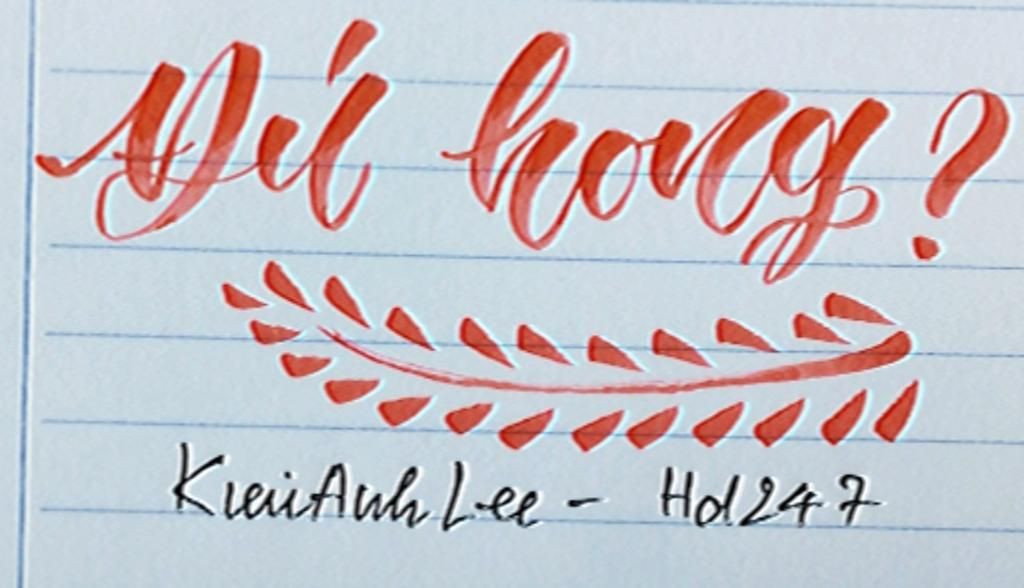 Dú hong?
KieuAnhLee - Hd247